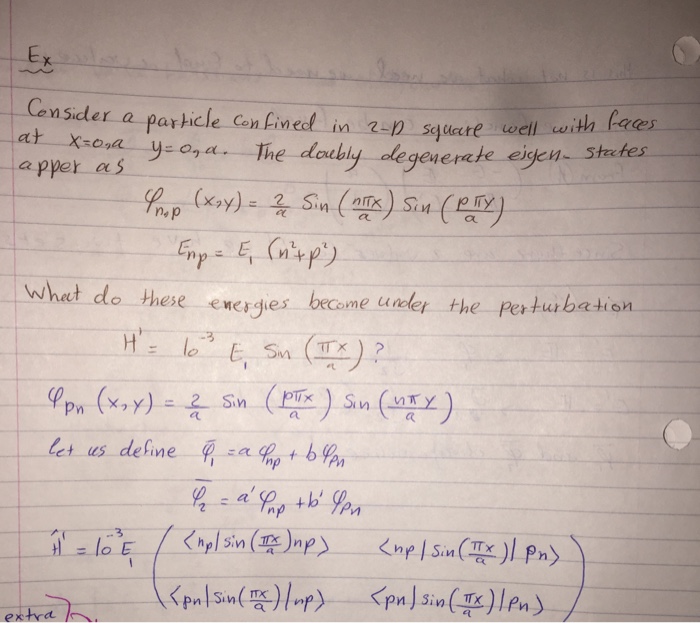 Ex
Consider a particle confined in 2-D square well with faces
at x=0,a y=0,a. The doubly degenerate eigen-states
apper as
φn,p (x,y) = 2/a Sin (nπx/a) Sin (pπy/a)
Enp = E₁ (n²+p²)
What do these energies become under the perturbation
H' = 10⁻³ E₁ Sin (πx/a) ?
φpn (x,y) = 2/a Sin (pπx/a) Sin (nπy/a)
let us define φ̄₁ = a φnp + b φpn
φ̄₂ = a' φnp + b' φpn
Ĥ' = 10⁻³ E₁ ( <np| sin(πx/a) np> <np | sin(πx/a) | pn>
<pn| sin(πx/a) | np> <pn| sin(πx/a) | pn> )
extra